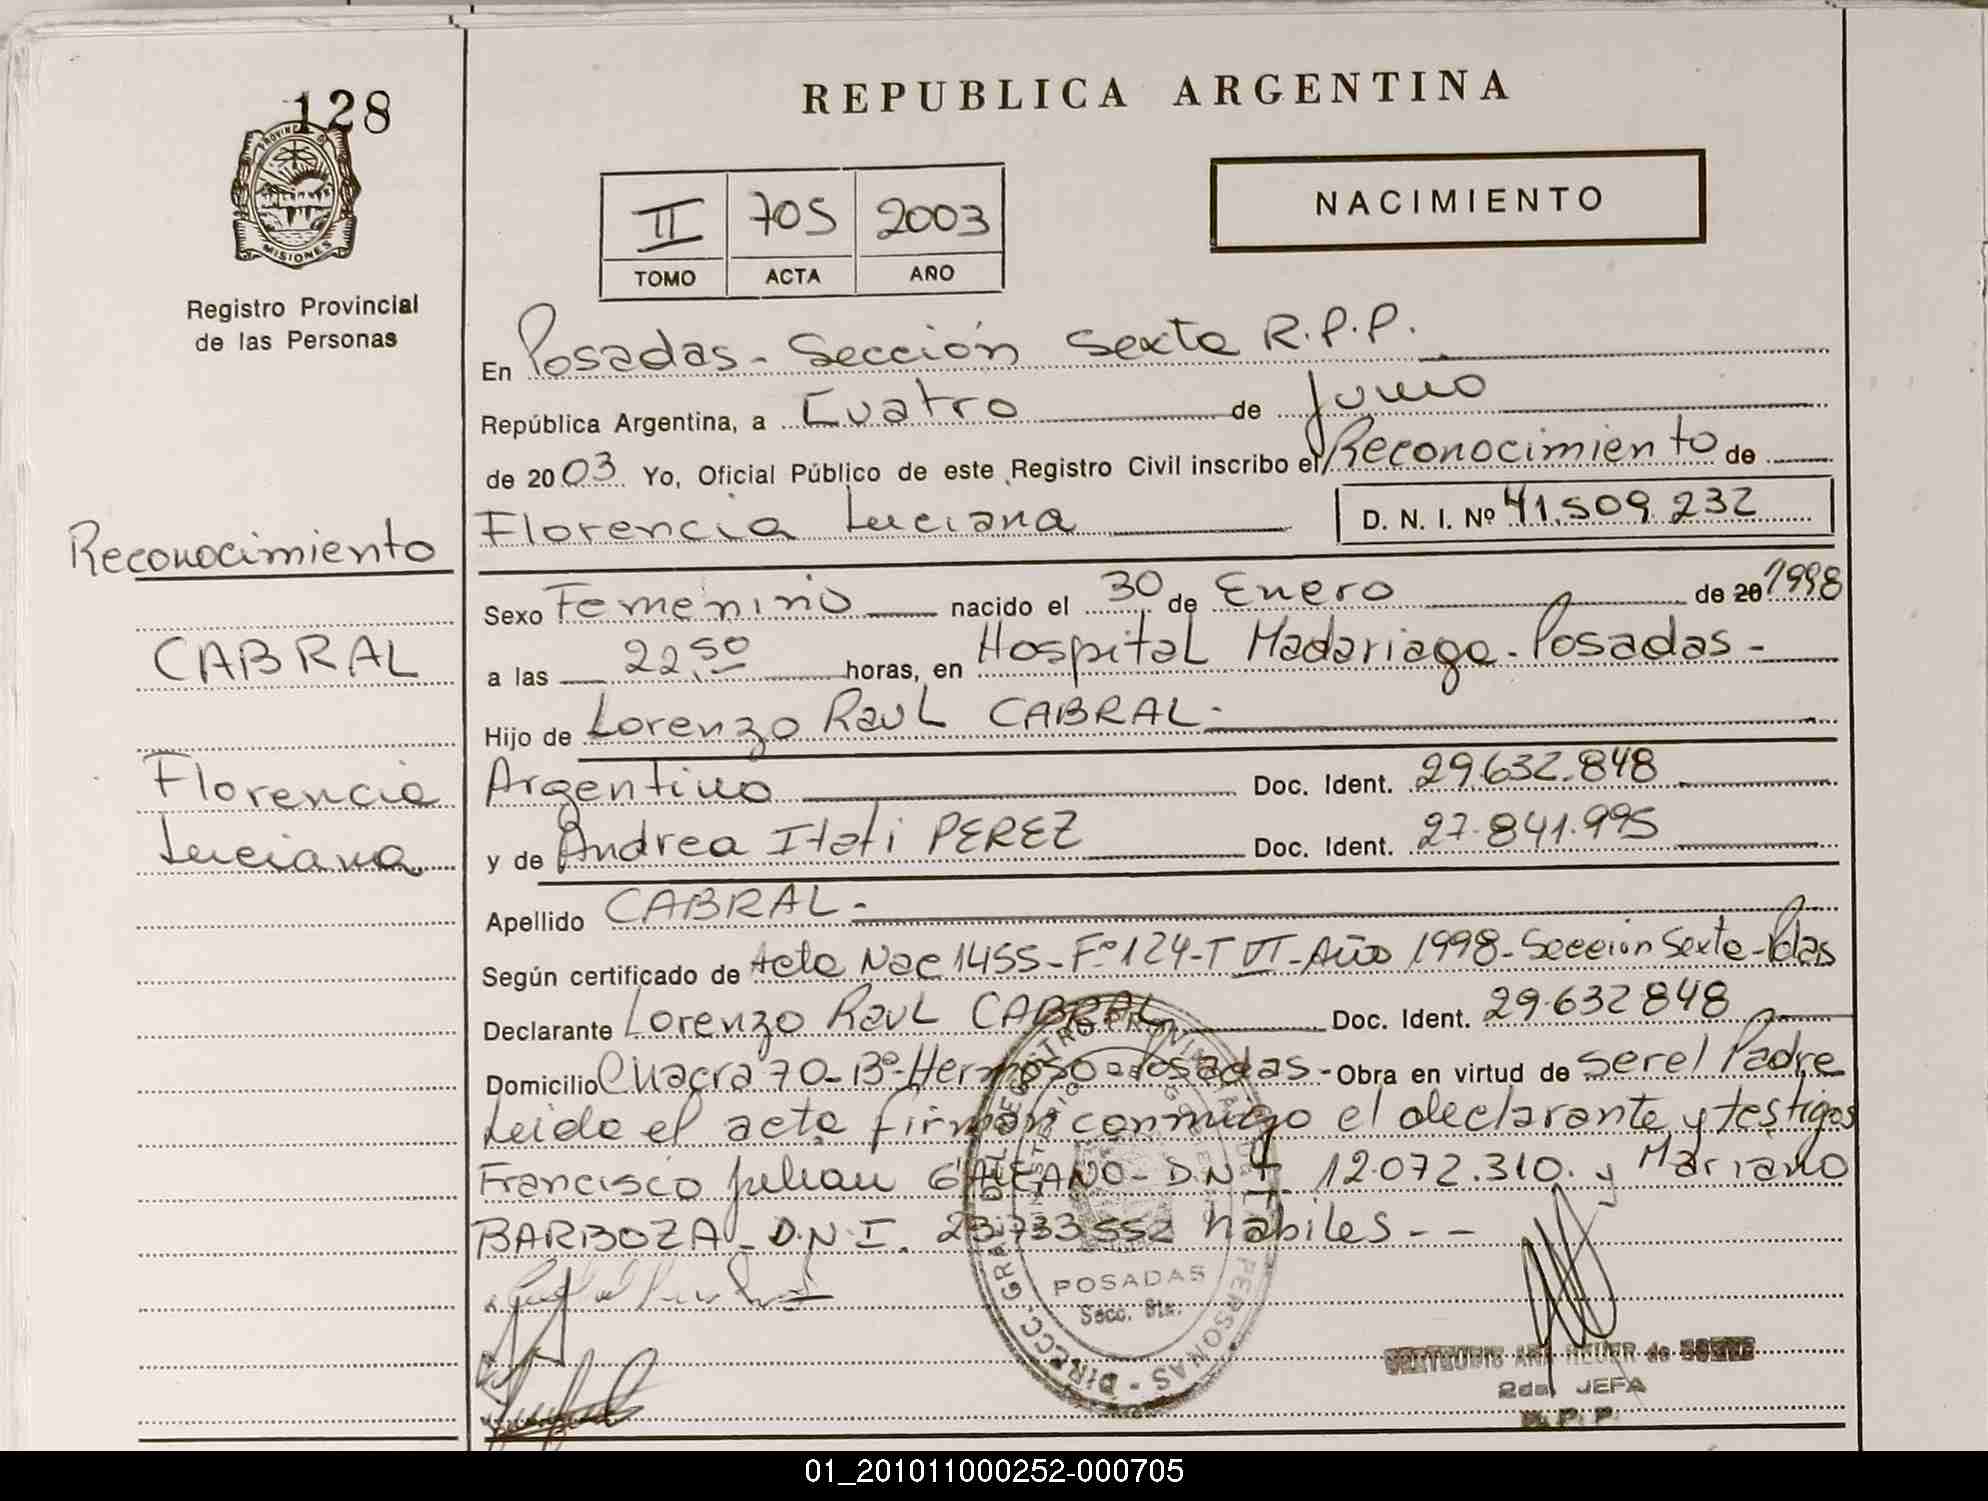 128
PROVINCIA DE
MISIONES
Registro Provincial
de las Personas
Reconocimiento
CABRAL
Florencia
Luciana
REPUBLICA ARGENTINA
II 705 2003
TOMO ACTA AÑO
NACIMIENTO
En Posadas - Sección Sexta R.P.P.
República Argentina, a Cuatro de Junio
de 2003 Yo, Oficial Público de este Registro Civil inscribo el Reconocimiento de
Florencia Luciana D. N. I. Nº 41.509.232
Sexo Femenino nacido el 30 de Enero de 20 1998
a las 22,50 horas, en Hospital Madariaga - Posadas -
Hijo de Lorenzo Raul CABRAL -
Argentino Doc. Ident. 29.632.848
y de Andrea Itati PEREZ Doc. Ident. 27.841.995
Apellido CABRAL -
Según certificado de Acta Nac 1455 - Fº 124 - T VI - Año 1998 - Sección Sexta - Pdas
Declarante Lorenzo Raul CABRAL Doc. Ident. 29.632 848
Domicilio Chacra 70 - Bº Hermoso - Posadas - Obra en virtud de ser el Padre
Leida el acta firman conmigo el declarante y testigos
Francisco Julian GALEANO - D.N.I. 12.072.310. y Mariano
BARBOZA - D.N.I. 23.733.552 habiles - -
POSADAS
Secc. 6ta.
2da. JEFA
R. P. P.
01_201011000252-000705